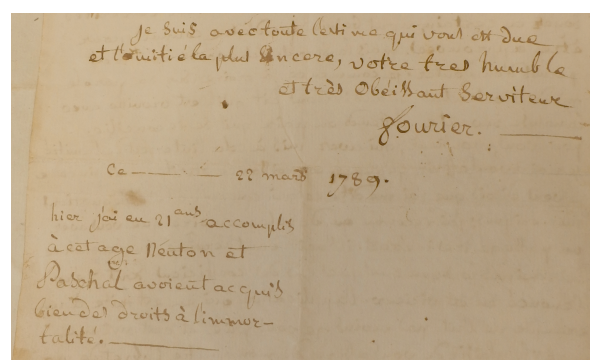 je suis avec toute l'estime qui vous est due
et l'amitié la plus sincere, votre tres humble
et très obéissant serviteur
fourier.
Ce 22 mars 1789.
hier j'ai eu 21 ans accomplis
à cet age Neuton et
Paschal avoient acquis
bien des droits à l'immor-
talité.